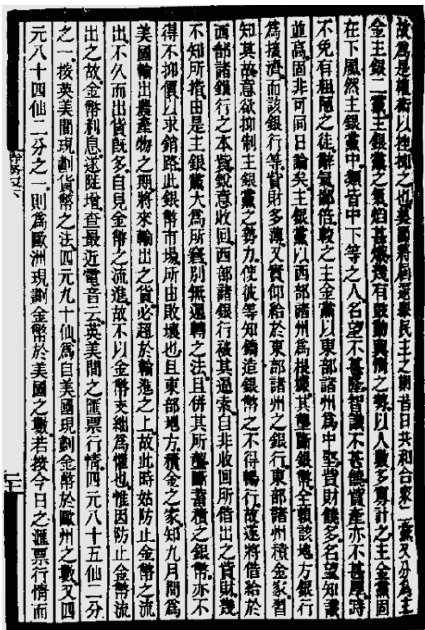 故爲是權術以控抑之也美國將回還舉民主之期昔日共和合衆二黨又分爲主
金主銀二黨主銀黨之氣焰甚熾幾有鼓動輿情之勢以人數多寡計之主金黨固
在下風然主銀黨中類皆中下等之人名望不甚隆智識不甚饒資產亦不甚厚時
不免有粗陋之徒辭氣鄙倍較之主金黨以東部諸州爲中堅皆財饒多名望知識
並高固非可同日論矣主銀黨以西部諸州爲根據其壟斷銀幣全賴該地方銀行
爲接濟而該銀行等貲財多薄又實仰給於東部諸州之銀行東部諸州積金家習
知其故意欲抑制主銀黨之勢力使彼等知鑄造銀幣之不得暢行故遂將借給於
西部諸銀行之本貲銳意收回西部諸銀行被其逼索自非收回所借出之貲財幾
不知所措由是主銀黨大爲所窘別無週轉之法且併其所壟斷蓄積之銀幣亦不
得不抑價以求銷路此銀幣市場所由敗壞也且東部地方積金之家知九月間爲
美國輸出農產物之期將來輸出之貨必超於輸進之上故此時始防止金幣之流
出不久而出貨旣多自見金幣之流進故不以金幣支絀爲懼也惟因防止金幣流
出之故金幣利息遂陡增查最近電音云英美間之匯票行情四元八十五仙二分
之一按英美間現劃貨幣之法四元九十仙爲自美國現劃金幣於歐州之數又四
元八十四仙二分之一則爲歐洲現劃金幣於美國之數若按今日之匯票行情而